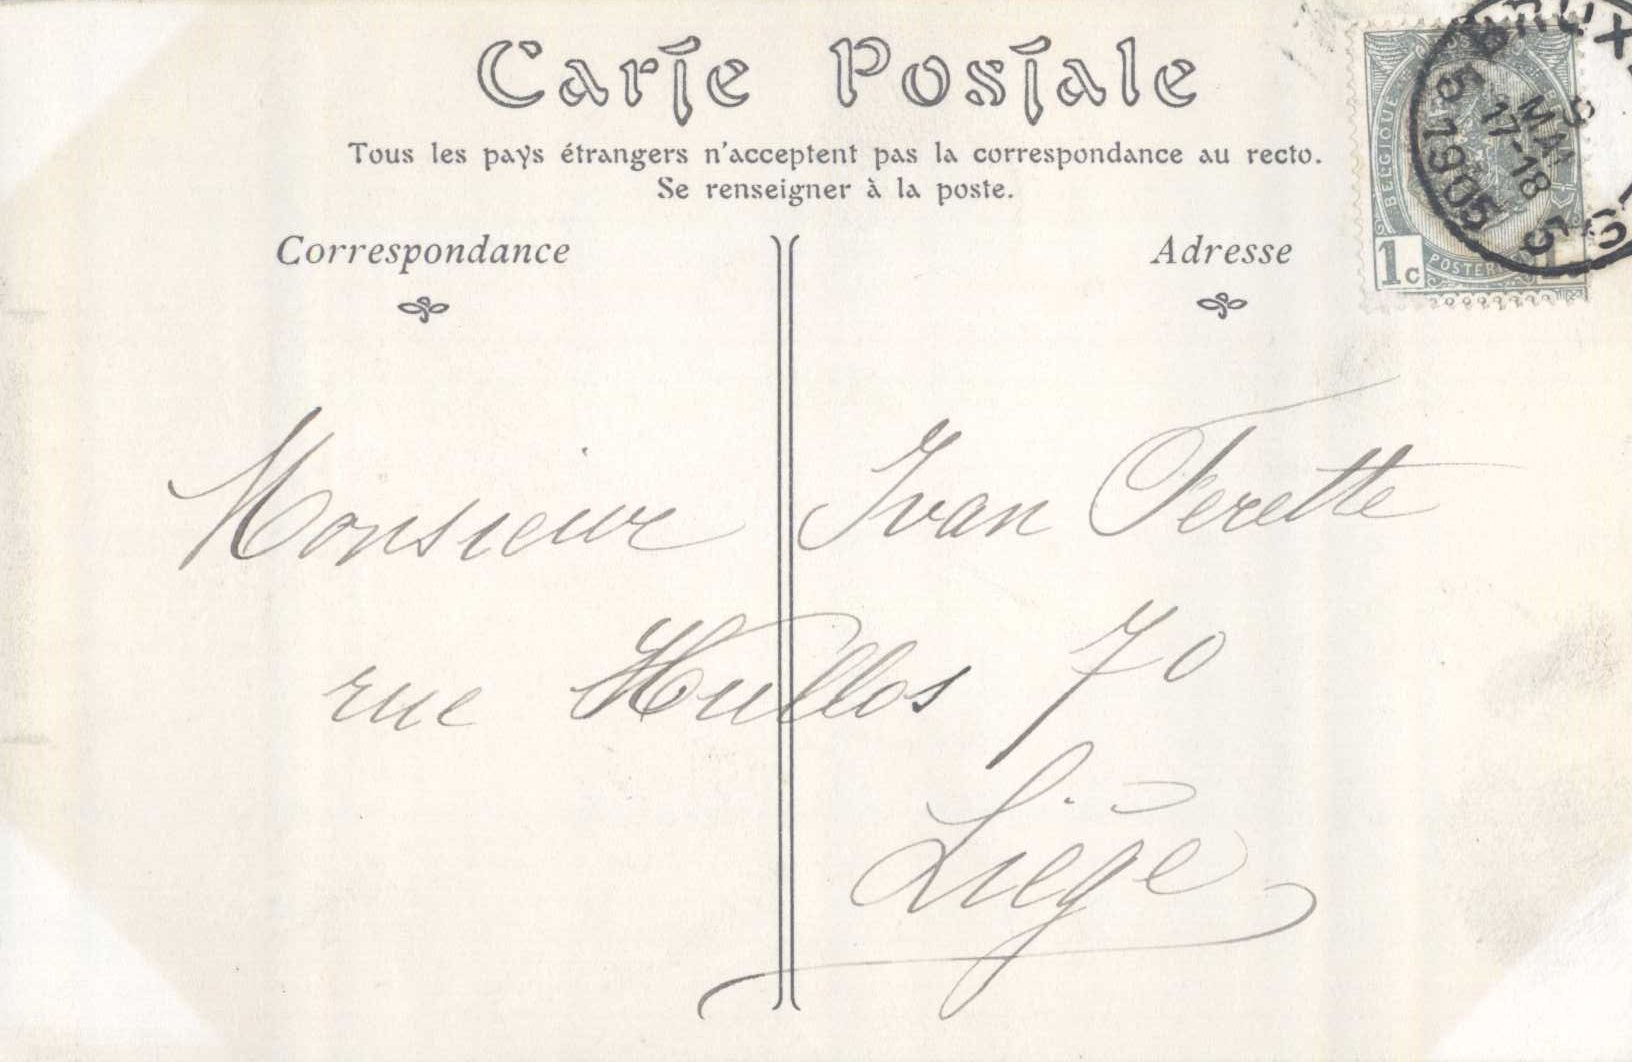 Carte Postale
Tous les pays étrangers n'acceptent pas la correspondance au recto.
Se renseigner à la poste.
Correspondance
Adresse
BELGIQUE
1c
9
MAI
17-18
5
1905
Monsieur Ivan Ferette
rue Hullos 70
Liège